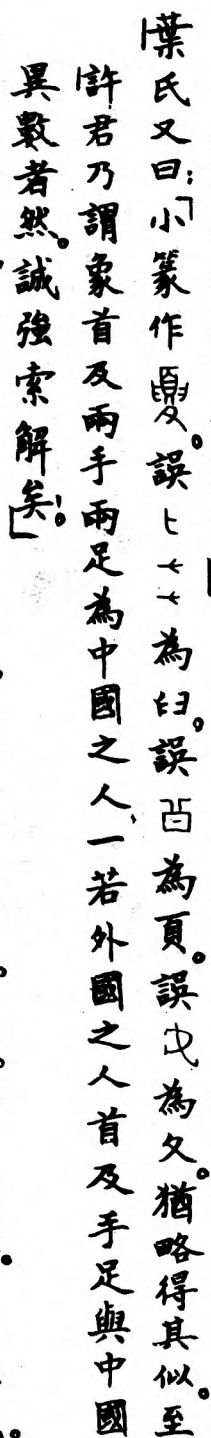 葉氏又曰:「小篆作夓。誤為𦥑,誤為頁。誤為夊。猶略得其似。至
許君乃謂象首及兩手兩足為中國之人、一若外國之人首及手足與中國
異數者然。誠強索解矣!」